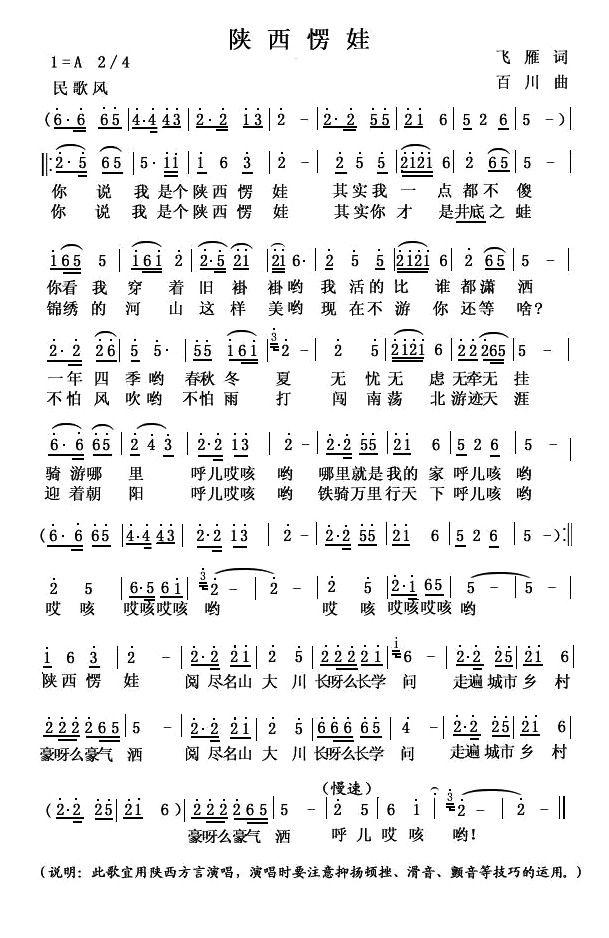 陕西愣娃
1=A 2/4
飞雁词
民歌风
百川曲
(6·6 65|4·4 43|2·2 13|2 -|2·2 55|21 6|5 2 6|5 -)|
‖:2·5 65|5·11|1 6 3|2 -|2 5 5|2121 6|2 65|5 -|
你说我是个陕西愣娃 其实我一点都不傻
你说我是个陕西愣娃 其实你才是井底之蛙
165 5|161 2|2·5 21|21 6·|2 5 5|2121 6|2 65|5 -|
你看我穿着旧褂褂哟我活的比谁都潇洒
锦绣的河山这样美哟现在不游你还等啥?
2·2 26|5 5·|55 161|3 2 -|2 5|2121 6|22 265|5 -|
一年四季哟春秋冬夏 无忧无虑无牵无挂
不怕风吹哟不怕雨打 闯南荡北游迹天涯
6·6 65|2 4 3|2·2 13|2 -|2·2 55|21 6|5 2 6|5 -|
骑游哪里呼儿哎咳哟 哪里就是我的家呼儿哟
迎着朝阳呼儿哎咳哟 铁骑万里行天下呼儿哟
(6·6 65|4·4 43|2·2 13|2 -|2·2 55|21 6|5 2 6|5 -):‖
2 5|6·5 61|3 2 -|2 -|2 5|2·1 65|5 -|5 -|
哎咳哎咳哎咳哟 哎咳哎咳哎咳哟
1 6 3|2 -|2·2 21|2 5|2222 21|1 6 -|2·2 25|21 6|
陕西愣娃 阅尽名山大川长呀么长学问 走遍城市乡村
2222 65|5 -|2·2 21|2 5|6666 65|4 -|2·2 25|21 6|
豪呀么豪气洒 阅尽名山大川长呀么长学问 走遍城市乡村
(慢速)
(2·2 25|21 6)|2222 65|5 -|2 2 5|6 1|3 2 -‖
豪呀么豪气洒 呼儿哎咳哟!
(说明:此歌宜用陕西方言演唱,演唱时要注意抑扬顿挫、滑音、颤音等技巧的运用。)